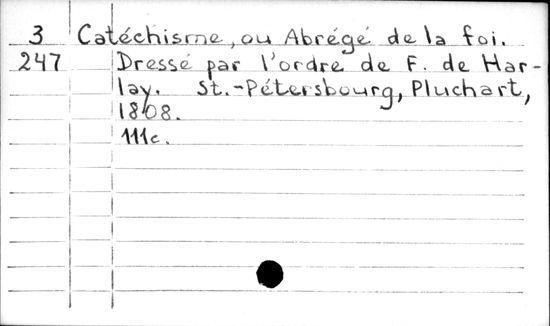 3 Catéchisme, ou Abrégé de la foi.
247 Dressé par l'ordre de F. de Har-
lay. St.-Pétersbourg, Pluchart,
1808.
111c.